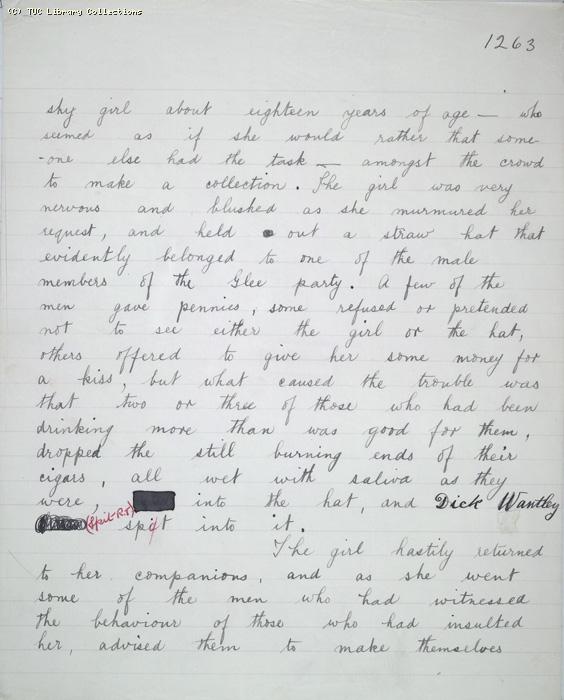 (C) TUC Library Collections
1263
shy girl about eighteen years of age — who
seemed as if she would rather that some-
-one else had the task — amongst the crowd
to make a collection. The girl was very
nervous and blushed as she murmured her
request, and held out a straw hat that
evidently belonged to one of the male
members of the Glee party. A few of the
men gave pennies, some refused or pretended
not to see either the girl or the hat,
others offered to give her some money for
a kiss, but what caused the trouble was
that two or three of those who had been
drinking more than was good for them,
dropped the still burning ends of their
cigars, all wet with saliva as they
were, into the hat, and Dick Wantley
spit into it.
The girl hastily returned
to her companions, and as she went
some of the men who had witnessed
the behaviour of those who had insulted
her, advised them to make themselves